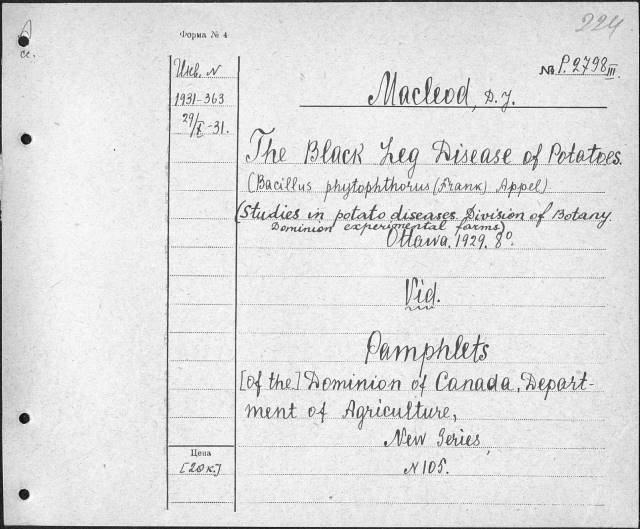 224
Форма № 4
№ P.2798 III.
Инв. N
1931-363
29/I-31.
Macleod, D.J.
The Black Leg Disease of Potatoes.
(Bacillus phytophthorus (Frank) Appel)
(Studies in potato diseases. Division of Botany.
Dominion experimental farms)
Ottawa. 1929. 8°.
Vid.
Pamphlets
[of the] Dominion of Canada, Depart-
ment of Agriculture,
New Series,
N 105.
Цена
[20к.]